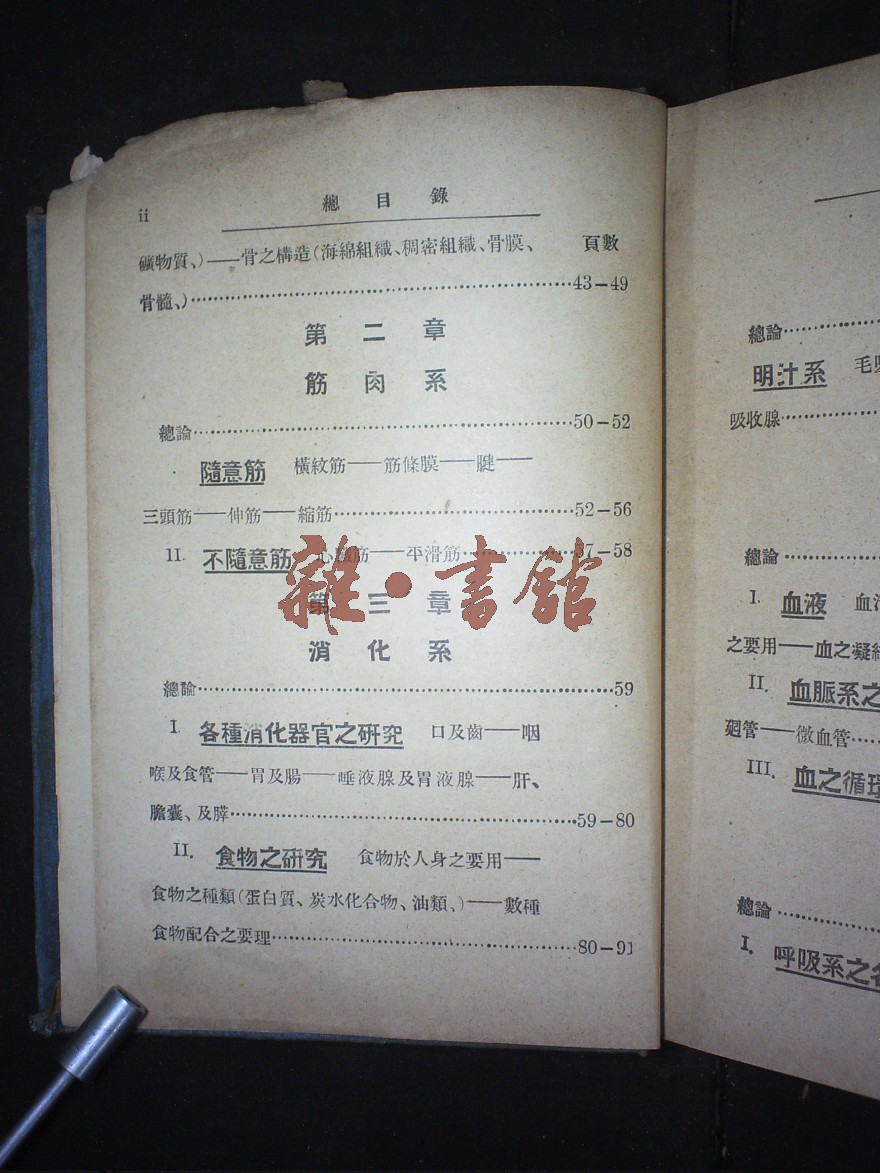 ii
總目錄
礦物質、)——骨之構造(海綿組織、稠密組織、骨膜、 頁數
骨髓、)………43—49
第二章
筋肉系
總論………50—52
隨意筋 橫紋筋——筋條膜——腱——
三頭筋——伸筋——縮筋………52—56
II. 不隨意筋 心臟筋——平滑筋………57—58
第三章
消化系
總論………59
I. 各種消化器官之研究 口及齒——咽
喉及食管——胃及腸——唾液腺及胃液腺——肝、
膽囊、及膵………59—80
II. 食物之研究 食物於人身之要用——
食物之種類(蛋白質、炭水化合物、油類、)——數種
食物配合之要理………80—91
雜·書館
總論………
明汁系
吸收腺………
總論………
I. 血液
之要用——血之凝
II. 血脈系之
廻管——微血管………
III. 血之循環
總論………
I. 呼吸系之各